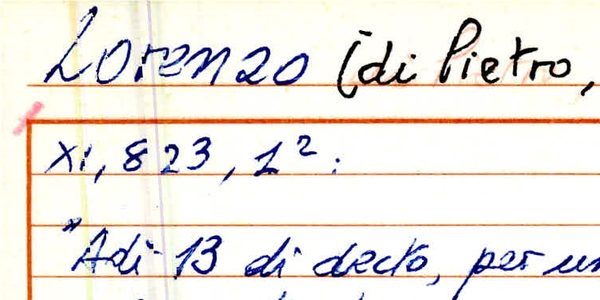 Lorenzo (di Pietro,
XI, 823, 1²:
"Adi 13 di decto, per un